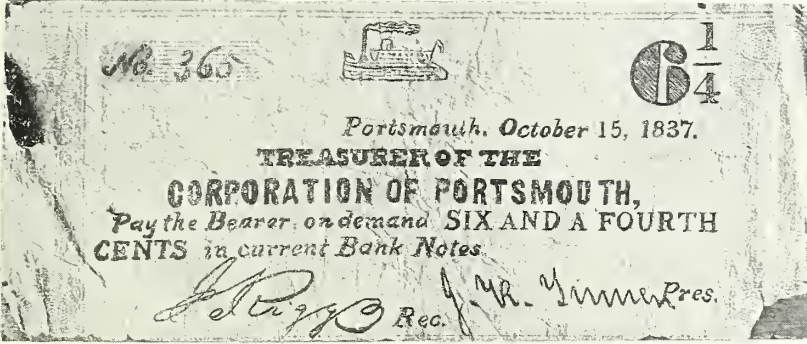 No. 365
6 1/4
Portsmouth, October 15, 1837.
TREASURER OF THE
CORPORATION OF PORTSMOUTH,
Pay the Bearer, on demand SIX AND A FOURTH
CENTS in current Bank Notes
Riggs Rec. J. Pres.